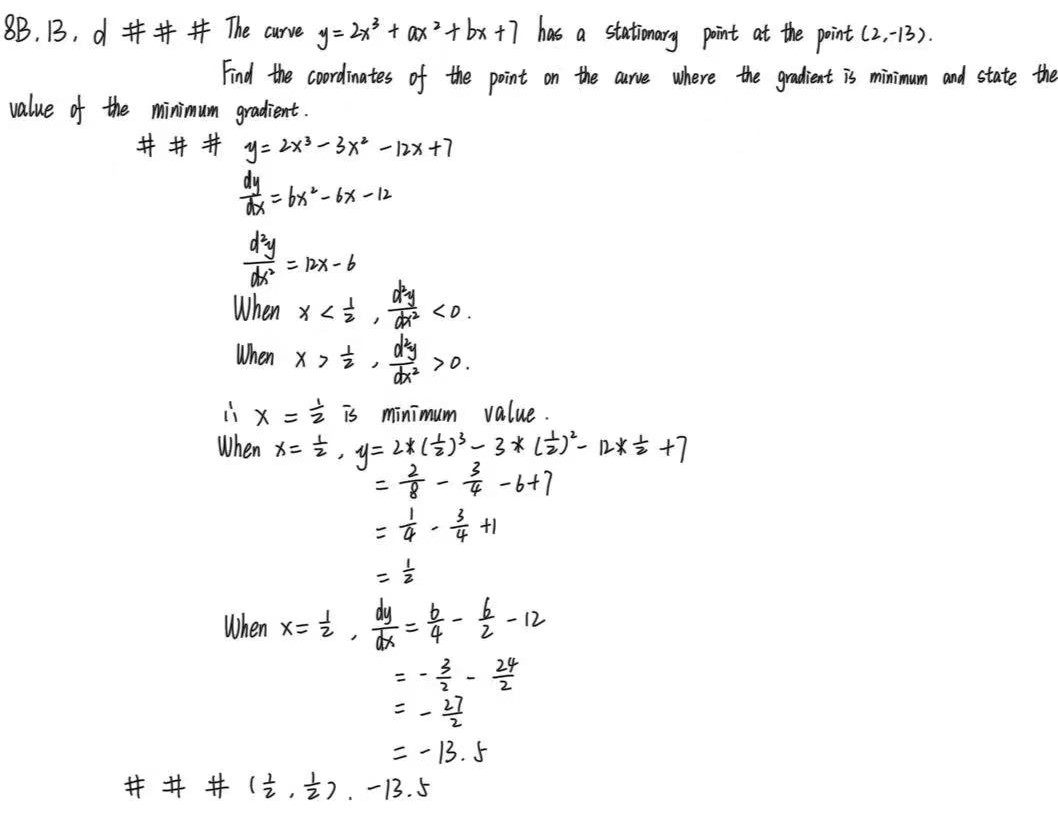 8B. 13. d # # # The curve y = 2x³ + ax² + bx + 7 has a stationary point at the point (2,-13).
Find the coordinates of the point on the curve where the gradient is minimum and state the
value of the minimum gradient.
# # # y = 2x³ - 3x² - 12x + 7
dy/dx = 6x² - 6x - 12
d²y/dx² = 12x - 6
When x < 1/2 , d²y/dx² < 0.
When x > 1/2 , d²y/dx² > 0.
∴ x = 1/2 is minimum value.
When x = 1/2 , y = 2*(1/2)³ - 3*(1/2)² - 12*1/2 + 7
= 2/8 - 3/4 - 6+7
= 1/4 - 3/4 +1
= 1/2
When x = 1/2 , dy/dx = 6/4 - 6/2 - 12
= - 3/2 - 24/2
= - 27/2
= -13.5
# # # (1/2 , 1/2) . -13.5